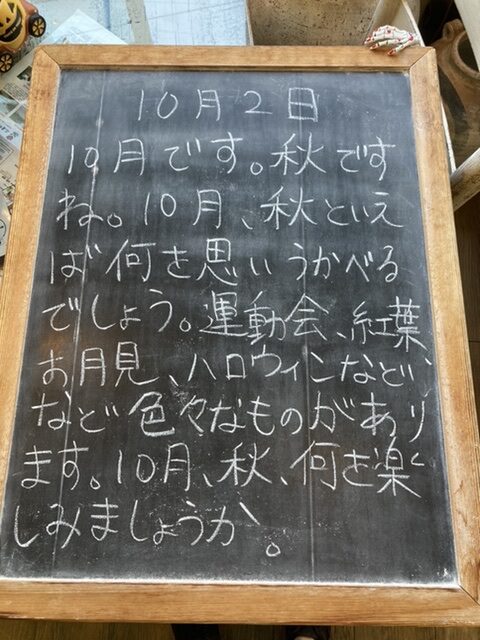 10月2日
10月です。秋です
ね。10月、秋といえ
ば何を思いうかべる
でしょう。運動会、紅葉、
お月見、ハロウィンなど、
など色々なものがあり
ます。10月、秋、何を楽
しみましょうか。